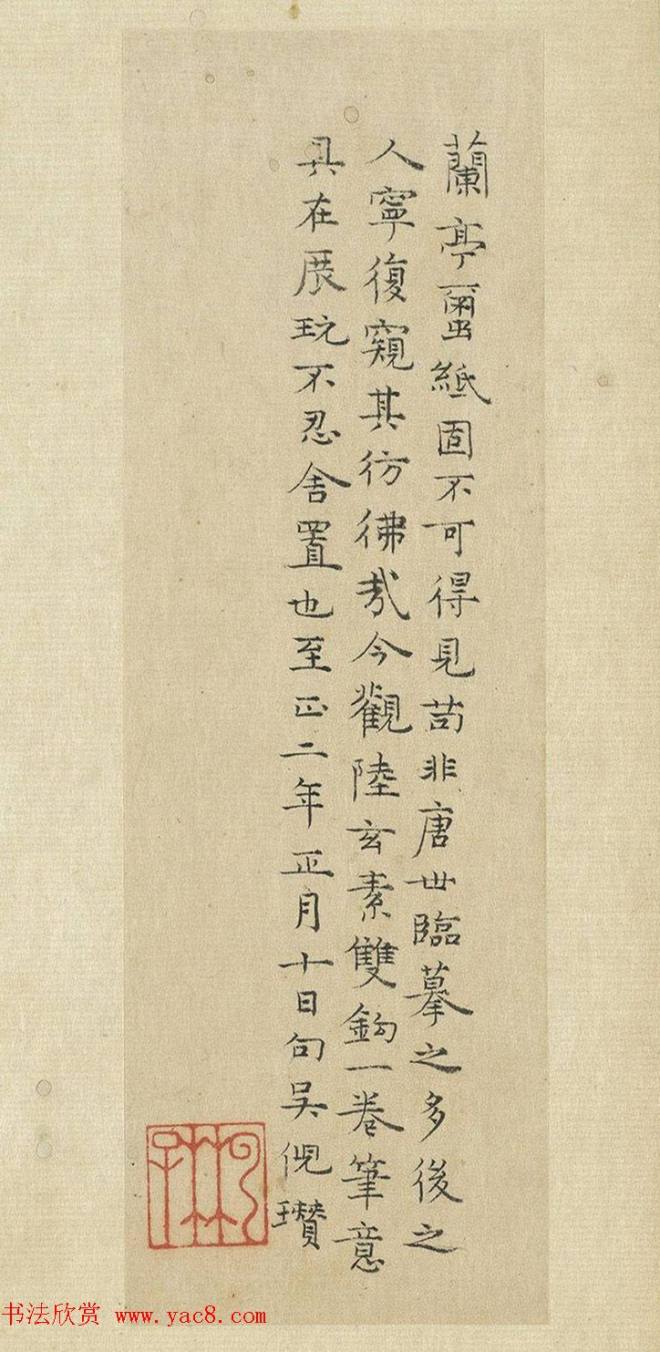 蘭亭璽紙固不可得見苟非唐世臨摹之多後之
人寧復窺其彷彿哉今觀陸玄素雙鈎一卷筆意
具在展玩不忍舍置也至正二年正月十日句吳倪瓚
书法欣赏 www.yac8.com